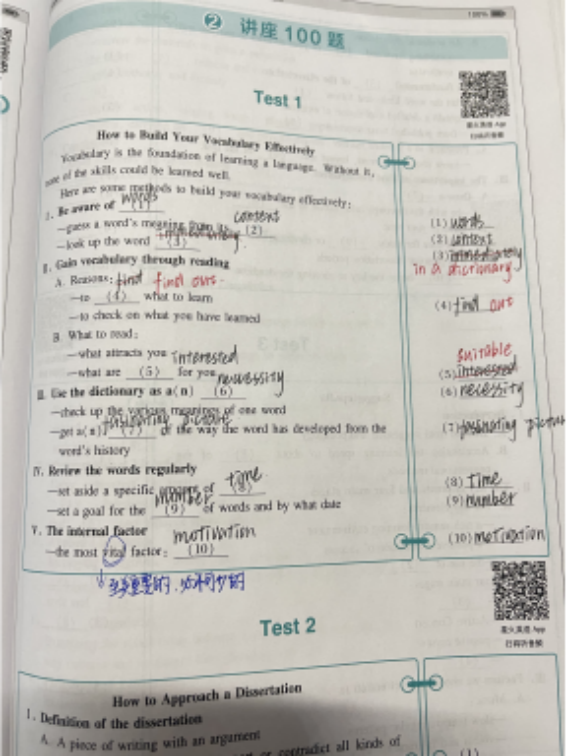 100%
2 讲座 100 题
Test 1
How to Build Your Vocabulary Effectively
Vocabulary is the foundation of learning a language. Without it,
none of the skills could be learned well.
Here are some methods to build your vocabulary effectively:
I. Be aware of (1) words
—guess a word's meaning from its (2) context
—look up the word (3)
II. Gain vocabulary through reading
A. Reasons: find find out
—to (4) what to learn
—to check on what you have learned
B. What to read:
—what attracts you interested
—what are (5) for you necessity
III. Use the dictionary as a(n) (6)
—check up the various meanings of one word
—get a(n) (7) of the way the word has developed from the
fascinating picture
word's history
IV. Review the words regularly
—set aside a specific amount of (8) time
—set a goal for the (9) of words and by what date
number
V. The internal factor motivation
—the most vital factor: (10)
至关重要的、必不可少的
(1) words
(2) context
(3) immediately
in a dictionary
(4) find out
suitable
(5) interested
(6) necessity
(7) fascinating picture
(8) time
(9) number
(10) motivation
星火英语 App
扫码听音频
Test 2
星火英语 App
扫码听音频
How to Approach a Dissertation
I. Definition of the dissertation
A. A piece of writing with an argument
or contradict all kinds of
(1)